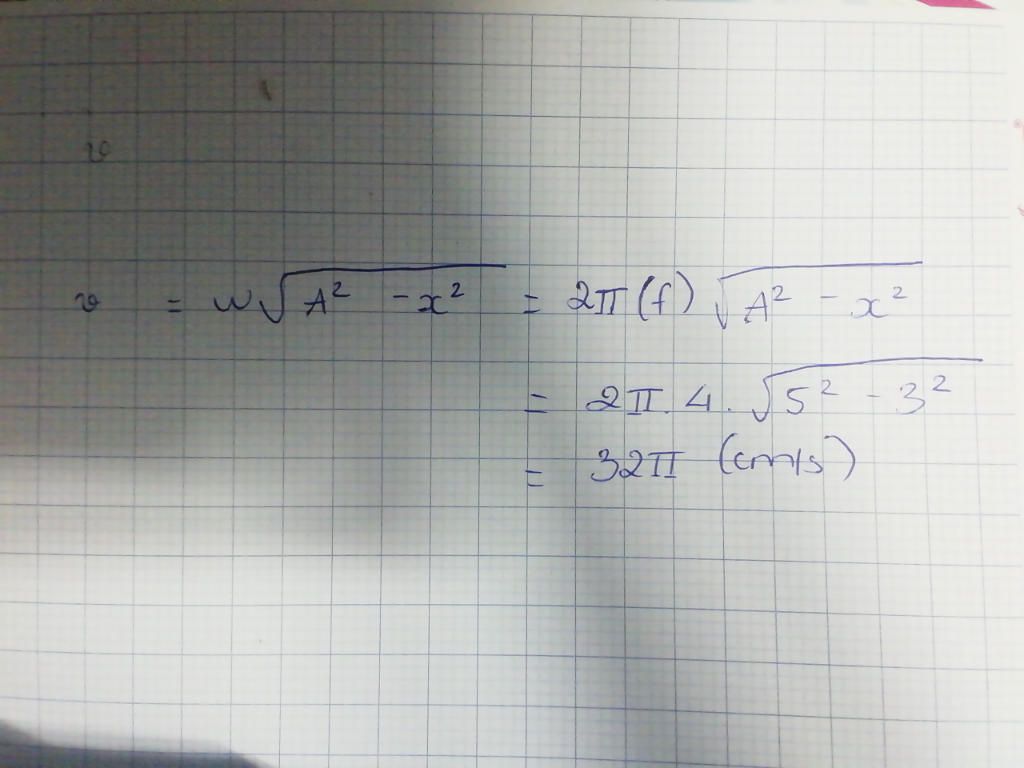 v
v = w√(A² - x²) = 2π(f) √(A² - x²)
= 2π.4.√(5² - 3²)
= 32π (cm/s)